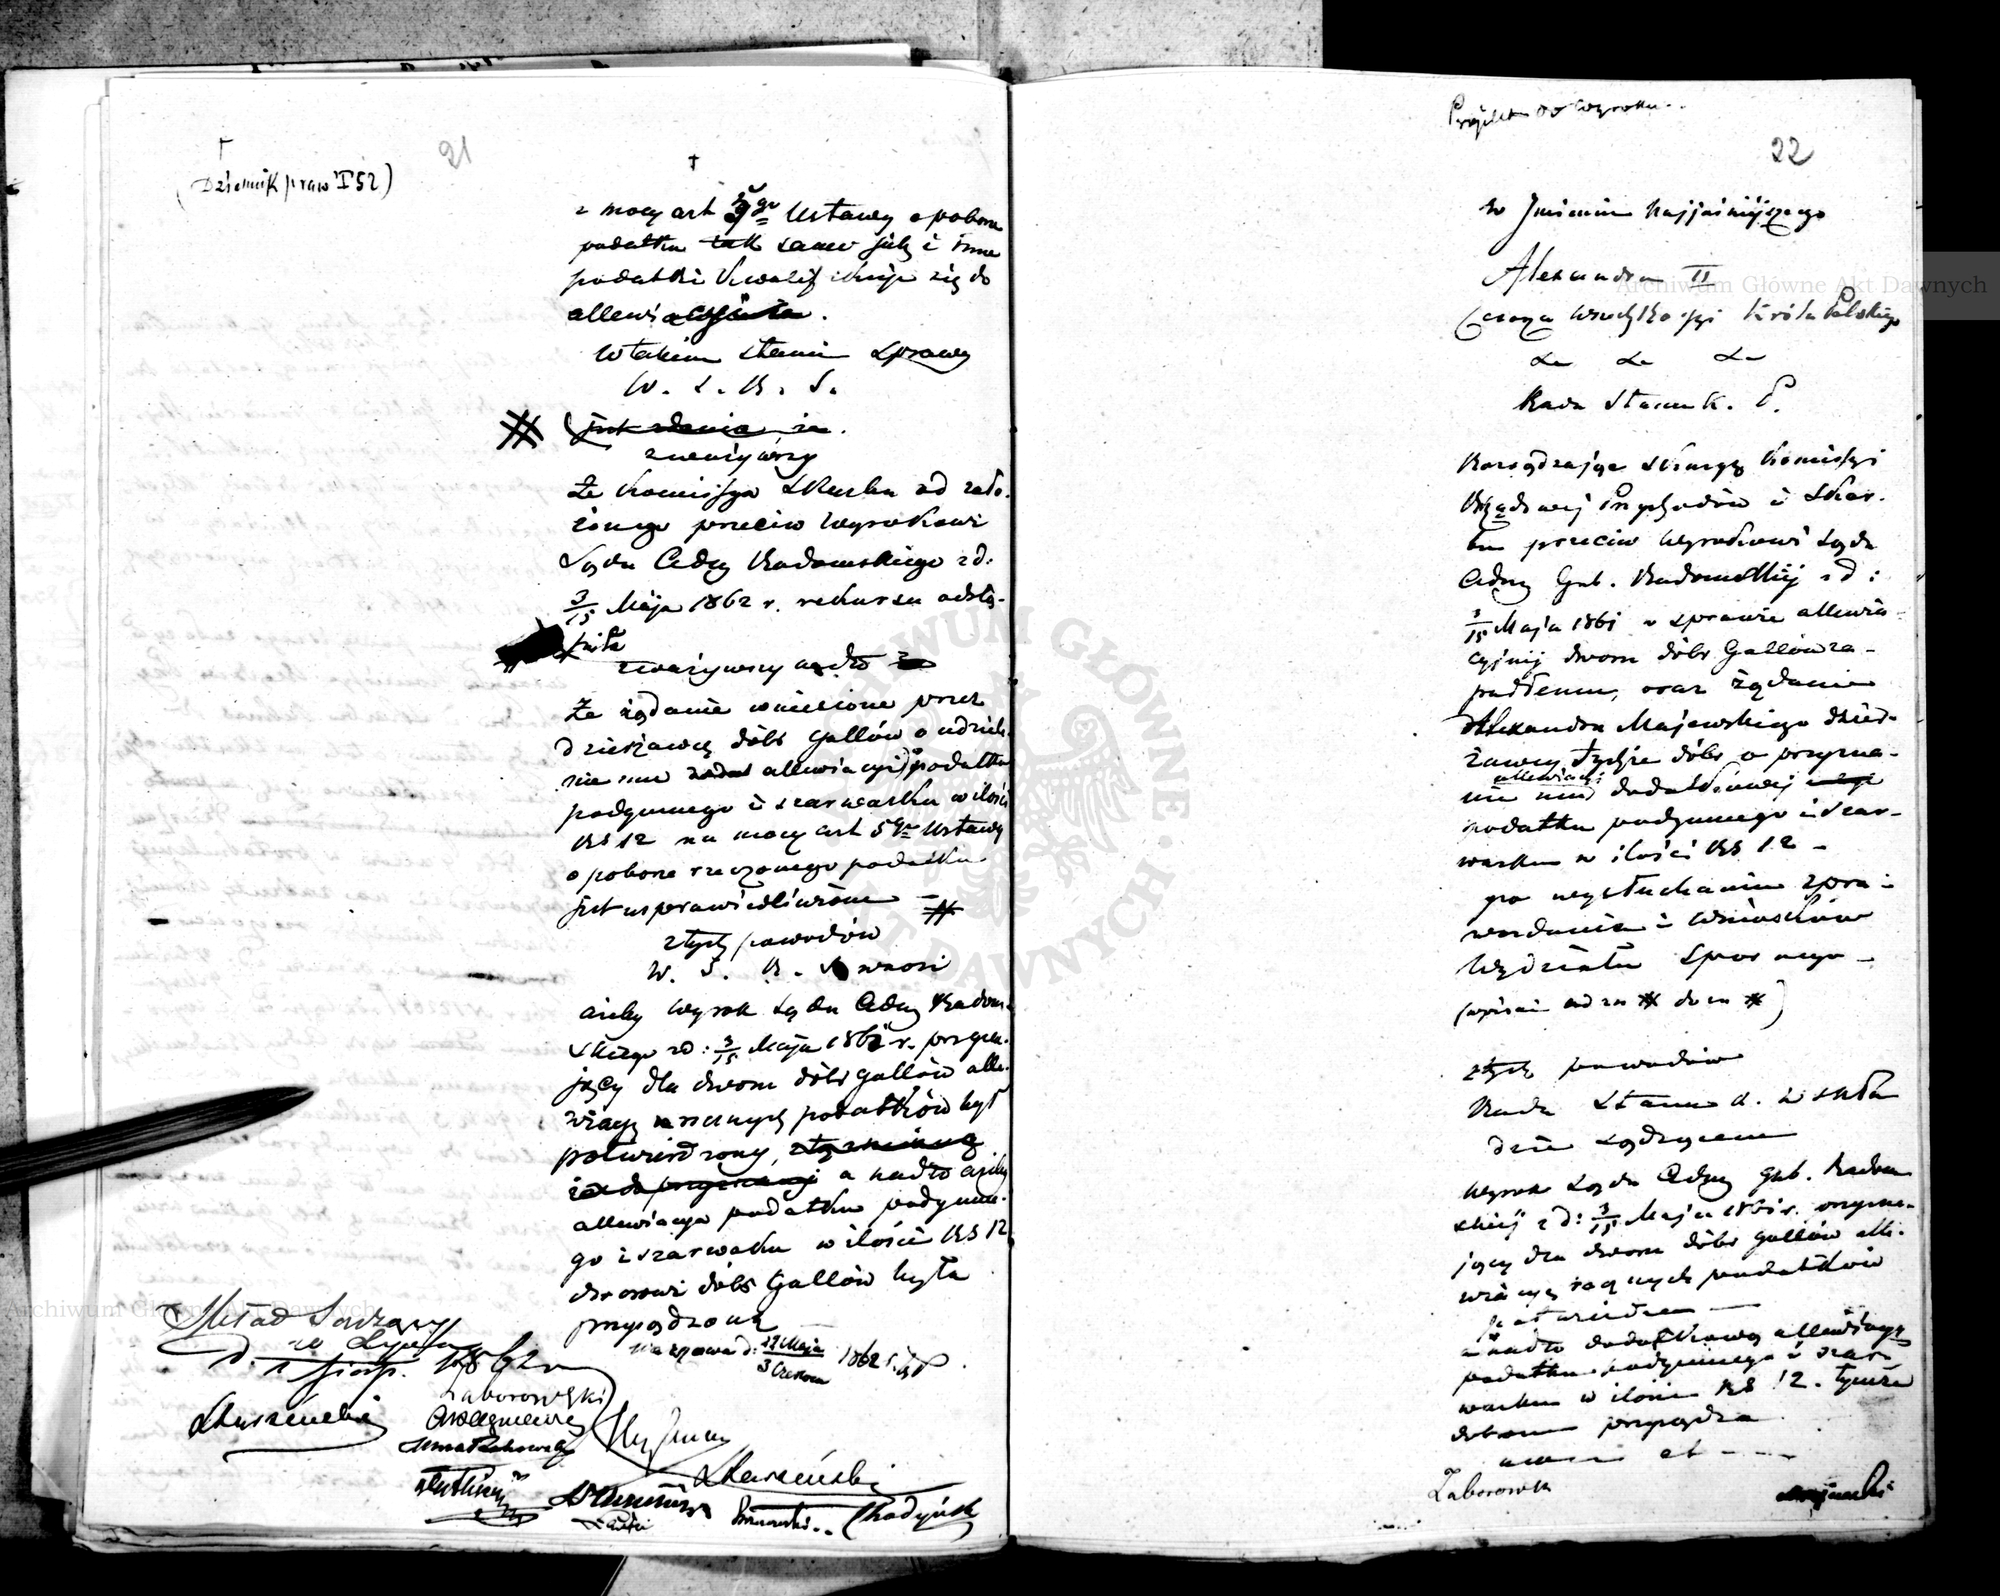 21
(Dziennik praw T 52)
z mocy art 5go Ustawy o poborze
podatku tak samo jak i inne
podatki kwalifikuje się do
allewiacyi
W takim stanie sprawy
W. S. R. S.
jest zdania, że
zważywszy
Że Kommissya Skarbu od zało-
żonego przeciw wyrokowi
Sądu Admy Radomskiego z d:
3/15 Maja 1862 r. rekursu odstą-
piła
zważywszy nadto
że żądanie wniesione przez
dzierżawcę dóbr Gallów o udziele-
nie mu allewiacyi podatku
podymnego i szarwarku w ilości
RS 12 na mocy art 5go Ustawy
o poborze rzeczonego podatku
jest usprawiedliwione
z tych powodów
W. S. R. S. wnosi
ażeby wyrok Sądu Admy Radom-
skiego z d: 3/15 Maja 1861 r. przyzna-
jący dla dworu dóbr Gallów alle-
wiacyę rocznych podatków był
potwierdzony, a nadto ażeby
allewiacya podatku podymne-
go i szarwarku w ilości RS 12
dworowi dóbr Gallów była
przysądzoną
Warszawa d: 22 Maja / 3 Czerwca 1862 r.
Skład Sądzący
d. 1 Sierp. 1862
Zaborowski
Skarzeński
Chodyński
Projekt do Wyroku
22
w Imieniu Najjaśniejszego
Alexandra II
Cesarza Wszech Rossyi Króla Polskiego
&c &c &c
Rada Stanu K. P.
Rozsądzając skargę Kommissyi
Rządowej Przychodów i Skar-
bu przeciw wyrokowi Sądu
Admy Gub. Radomskiej z d:
3/15 Maja 1861 w sprawie allewia-
cyjnej dworu dóbr Gallów za-
padłemu, oraz żądanie
Alexandra Majewskiego dzier-
żawcy tychże dóbr o przyzna-
nie mu allewiacyi dodatkowej
podatku podymnego i szar-
warku w ilości RS 12 –
po wysłuchaniu spra-
wozdania i wniosków
Wydziału Spornego –
(wpisać od zn # do zn #)
z tych powodów
Rada Stanu K. w skła-
dzie sądzącym
Wyrok Sądu Admy Gub. Radom-
skiej z d: 3/15 Maja 1861 r. przyzna-
jący dla dworu dóbr Gallów alle-
wiacyę rocznych podatków
potwierdza
a nadto dodatkową allewiacyę
podatku podymnego i szar-
warku w ilości RS 12. tymże
dobrom przysądza
Zaborowski